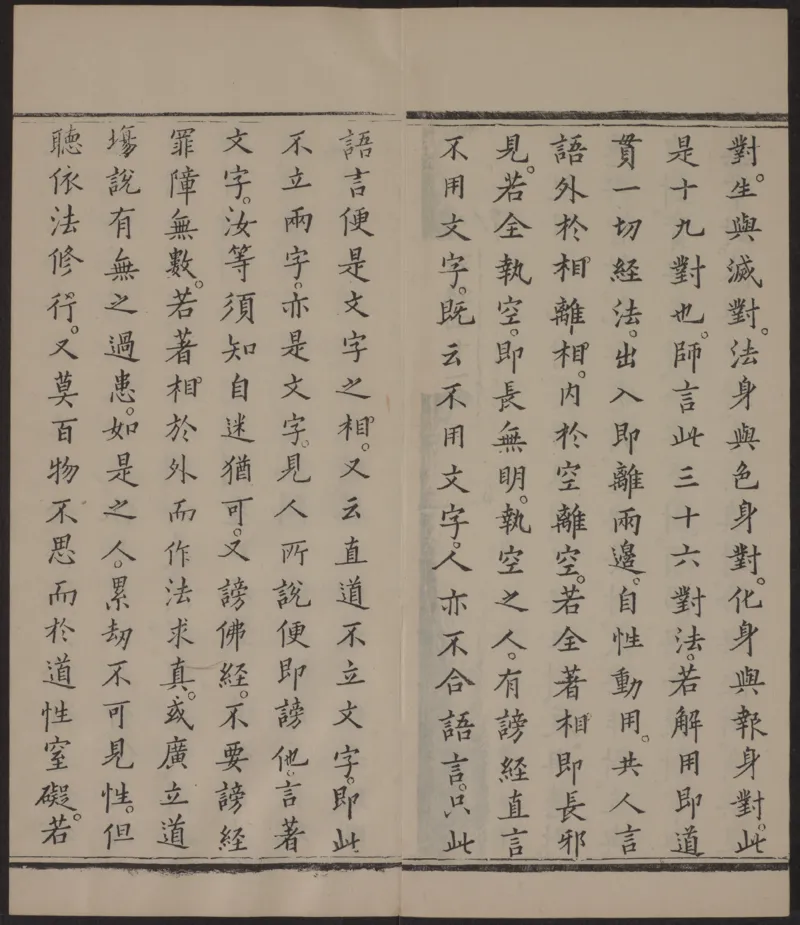 對。生與滅對。法身與色身對。化身與報身對。此
是十九對也。師言此三十六對法。若解用即道
貫一切經法。出入即離兩邊。自性動用。共人言
語外於相離相。内於空離空。若全著相即長邪
見。若全執空。即長無明。執空之人。有謗經直言
不用文字。既云不用文字。人亦不合語言。只此
語言便是文字之相。又云直道不立文字。即此
不立兩字。亦是文字。見人所說便即謗他。言著
文字。汝等須知自迷猶可。又謗佛經。不要謗經
罪障無數。若著相於外而作法求真。或廣立道
場說有無之過患。如是之人。累劫不可見性。但
聽依法修行。又莫百物不思而於道性窒礙。若